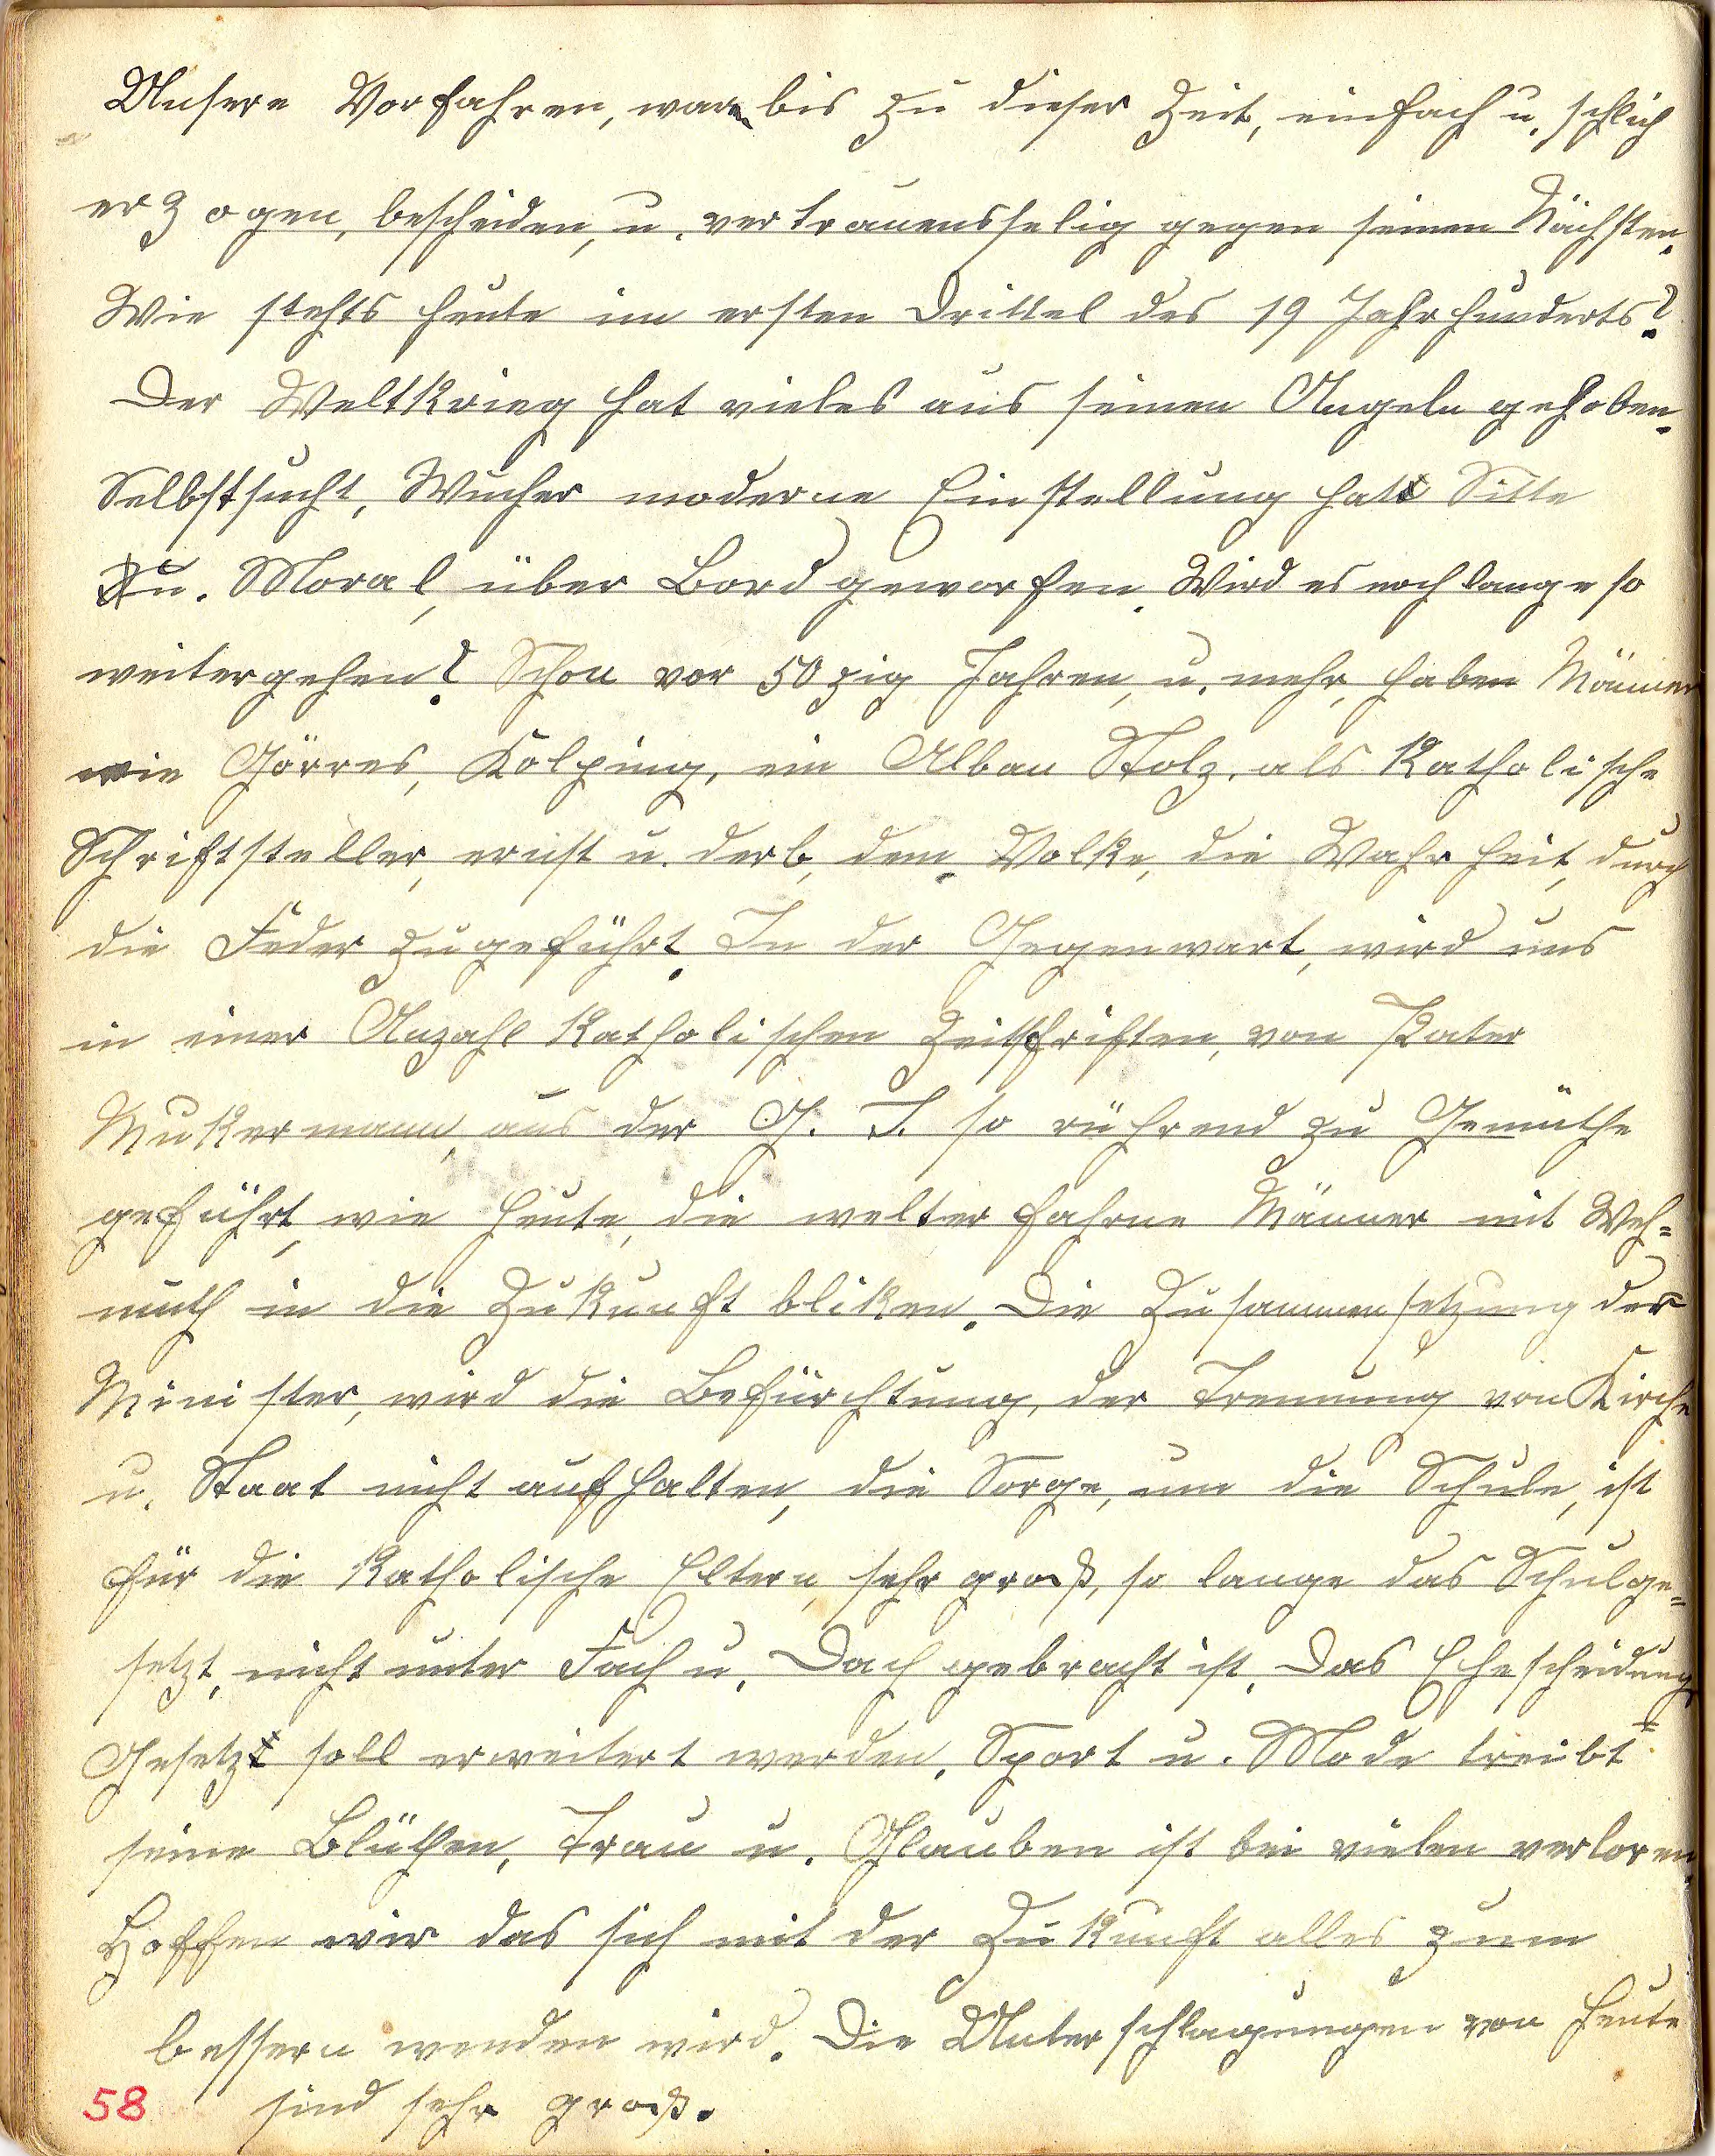 Unsere Vorfahren, waren bis zu dieser Zeit, einfach u. schlich
erzogen, bescheiden, u. vertrauensselig gegen seinen Nächsten.
Wie stehts heute im ersten Drittel des 19 Jahrhunderts?
Der Weltkrieg hat vieles aus seinen Angeln gehoben.
Selbstsucht, Wucher moderne Einstellung hat Sitte
u. Moral, über Bord geworfen. Wird es noch lange so
weitergehen? Schon vor 50zig Jahren, u. mehr, haben Männer
wie Görres, Kolping, ein Alban Stolz. als Katholische
Schriftsteller, ernst u. derb, dem Volke, die Wahrheit, durch
die Feder zugeführt. In der Gegenwart, wird uns
in einer Anzahl Katholischen Zeitschriften, von Pater
Mukermann, aus der G. J. so rührend zu Gemüthe
geführt, wie heute, die welterfahrne Männer mit Weh=
muth in die Zukunft bliken. Die Zusammensetzung der
Minister, wird die Befürchtung, der Trennung von Kirche
u. Staat nicht aufhalten, die Sorge, um die Schule, ist
für die Katholische Eltern, sehr groß, so lange das Schulge=
setzt, nicht unter Fach u. Dach gebracht ist. Das Ehescheidung=
Gesetz soll erweitert werden. Sport u. Mode treibt
seine Blüthen, Trau u. Glauben ist bei vielen verloren.
Hoffen wir das sich mit der Zukunft alles zum
bessern wenden wird. Die Unterschlagungen von heute
sind sehr groß.
58